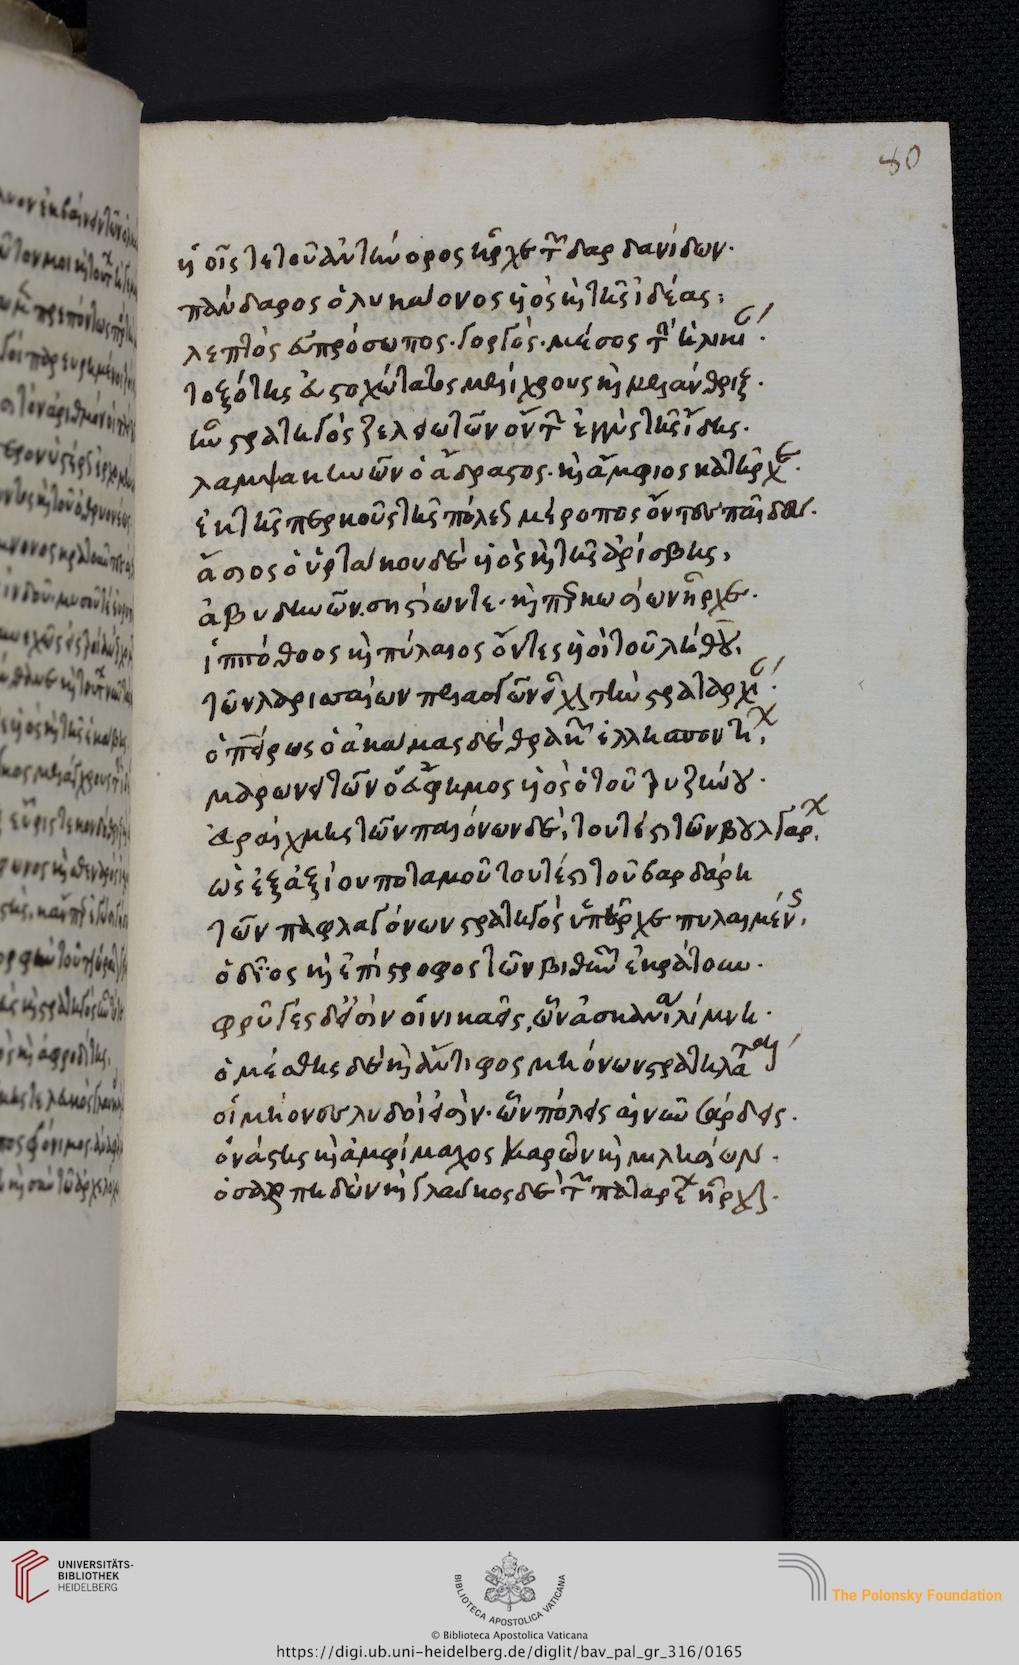 80
υἱοῖς τε τοῦ ἀντήνορος ἦρχε τῶν δαρδανίδων.
πάνδαρος ὁ λυκάονος υἱὸς καὶ τῆς ἰδέας:
λεπτὸς εὐπρόσωπος. γοργός. μέσος τὴν ἡλικίαν.
τοξότης εὐστοχώτατος μελίχρους καὶ μελάνθριξ.
ἦν στρατηγὸς ζελειωτῶν ὄντων ἐγγὺς τῆς ἴδης.
λαμψακηνῶν ὁ ἄδραστος. καὶ ἄμφιος κατῆρχε.
ἐκ τῆς περκούσης πόλεως μέροπος ὄντες παῖδες.
ἄσιος ὁ ὑρτάκου δὲ υἱὸς καὶ τῆς ἀρίσβης,
ἀβυδηνῶν. σηστίων τε. καὶ περκωσίων ἦρχε.
ἱππόθοος καὶ πύλαιος ὄντες υἱοὶ τοῦ λήθου.
τῶν λαρισσαίων πελασγῶν εἶχον τὴν στραταρχίαν.
ὁ πείρως ὁ ἀκάμας δὲ, θρακῶν ἑλλησποντίων.
μάρων τῶν ὁ εὔφημος υἱὸς ὁ τοῦ τρυζήνου.
πυραίχμης τῶν παιόνων δὲ, τουτέστι τῶν βουλγάρων.
ὡς ἐξ ἀξίου ποταμοῦ τουτέστι τοῦ βαρδάρη
τῶν παφλαγόνων στρατηγὸς ὑπῆρχε πυλαιμένης.
ὁ δῖος καὶ ἐπίστροφος τῶν βιθυνῶν ἐκράτουν.
φρύγες δ' εἰσὶν οἱ νικαεῖς, ὧν ἀσκανία λίμνη.
ὁ μέσθλης δὲ καὶ ἄντιφος μηόνων στρατηλάται
οἱ μήονες λυδοί εἰσιν. ὧν πόλις αἰνῶ σάρδεις.
ὁ νάστης καὶ ἀμφίμαχος καρῶν καὶ μιλησίων.
ὁ σαρπηδὼν καὶ γλαῦκος δὲ τῶν παταρέων ἦρχον.
UNIVERSITÄTS-
BIBLIOTHEK
HEIDELBERG
BIBLIOTECA APOSTOLICA VATICANA
The Polonsky Foundation
© Biblioteca Apostolica Vaticana
https://digi.ub.uni-heidelberg.de/diglit/bav_pal_gr_316/0165